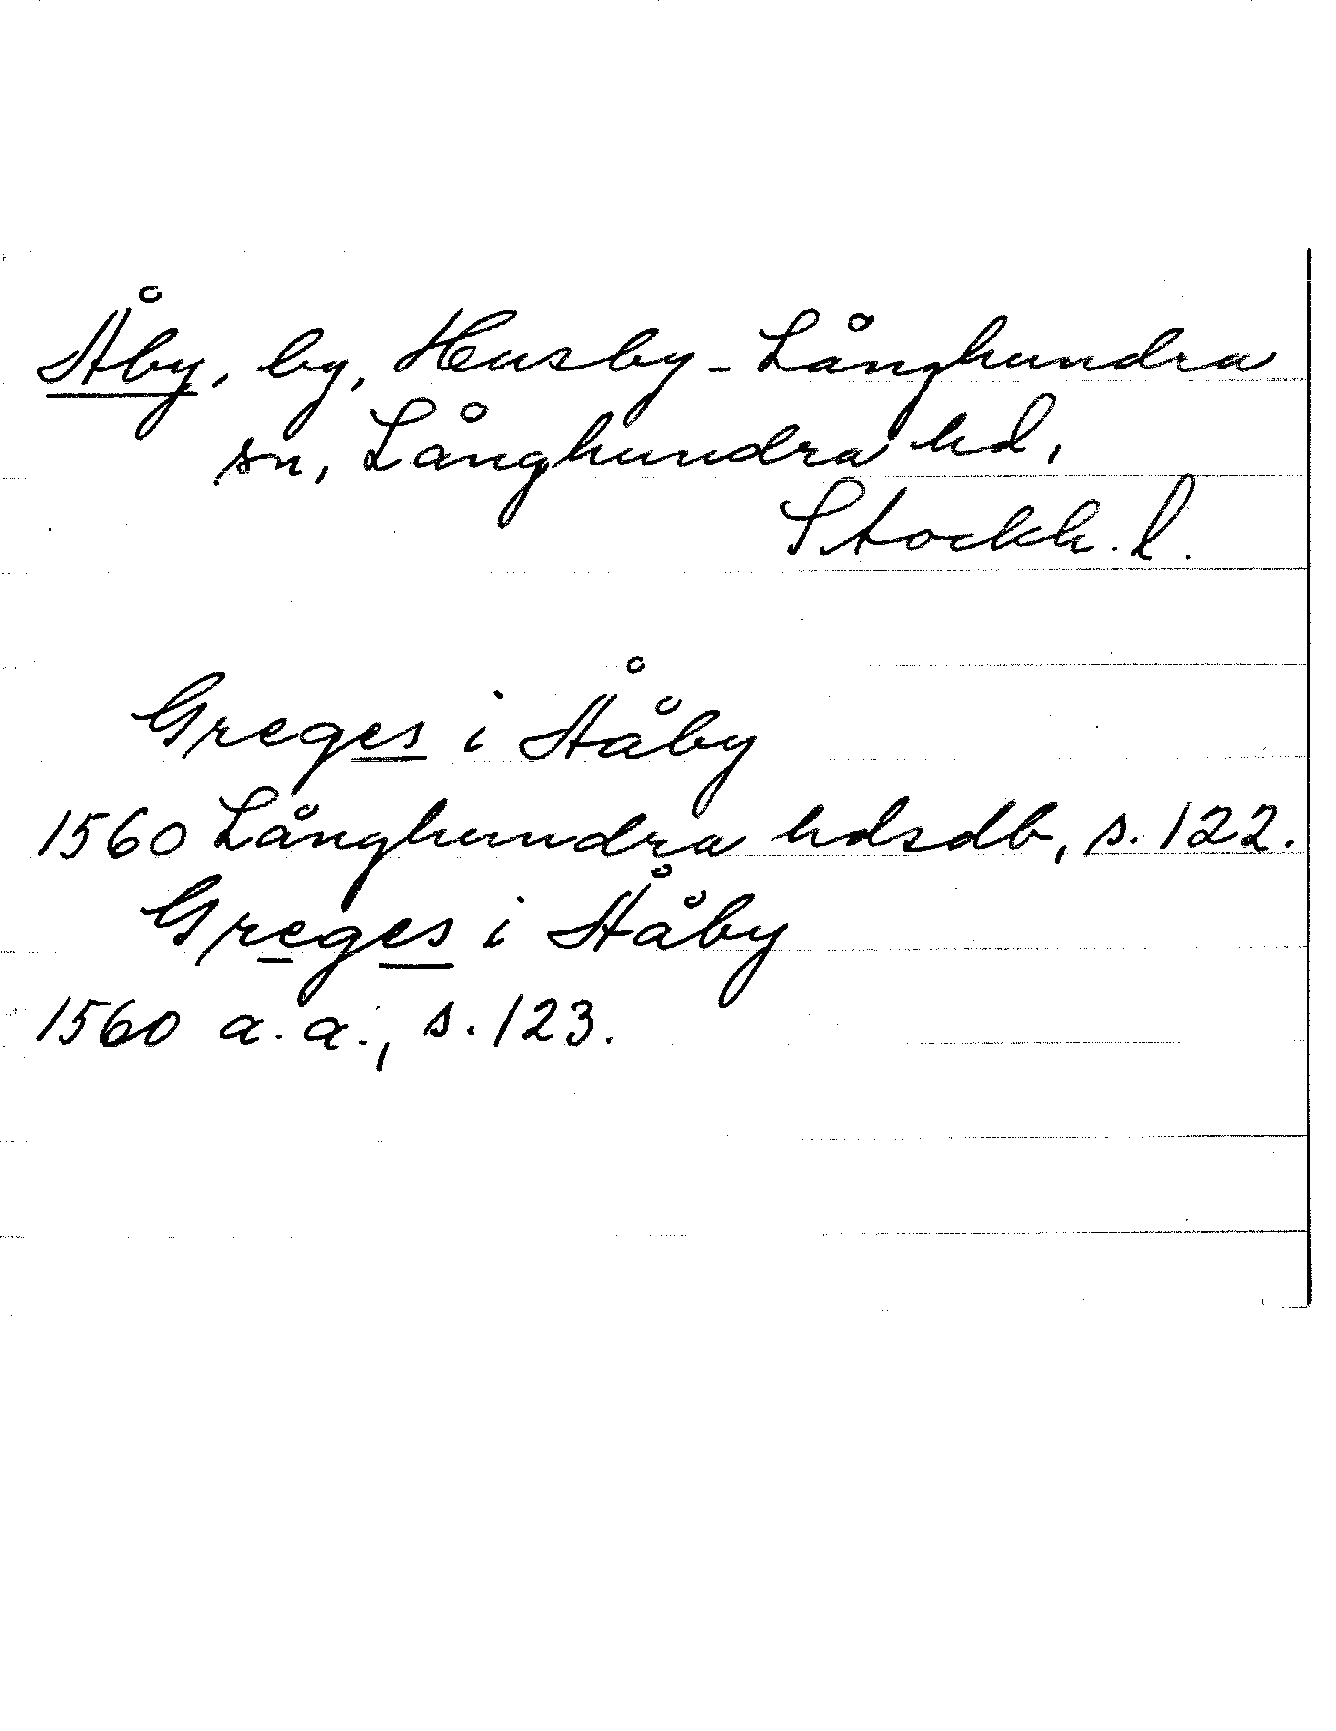 Åby, by, Husby-Långhundra
sn, Långhundra hd,
Stockh. l.
Greges i Ååby
1560 Långhundra hdsdb, s. 122.
Greges i Ååby
1560 a. a., s. 123.